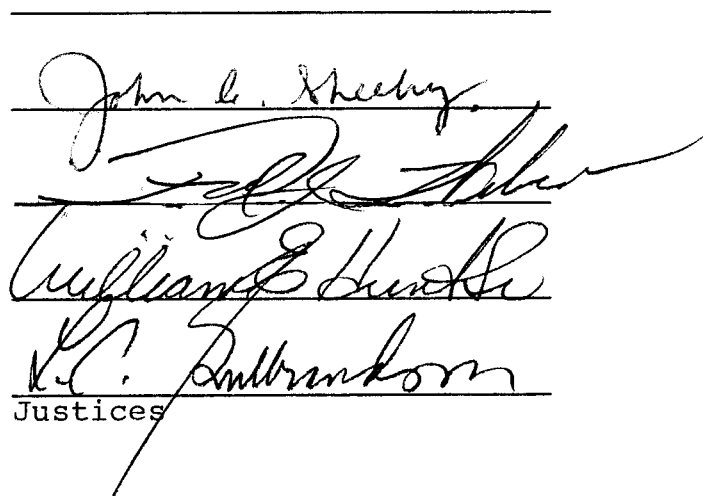 John C. Sheehy
William E. Hunt Sr
L.C. Gulbrandson
Justices